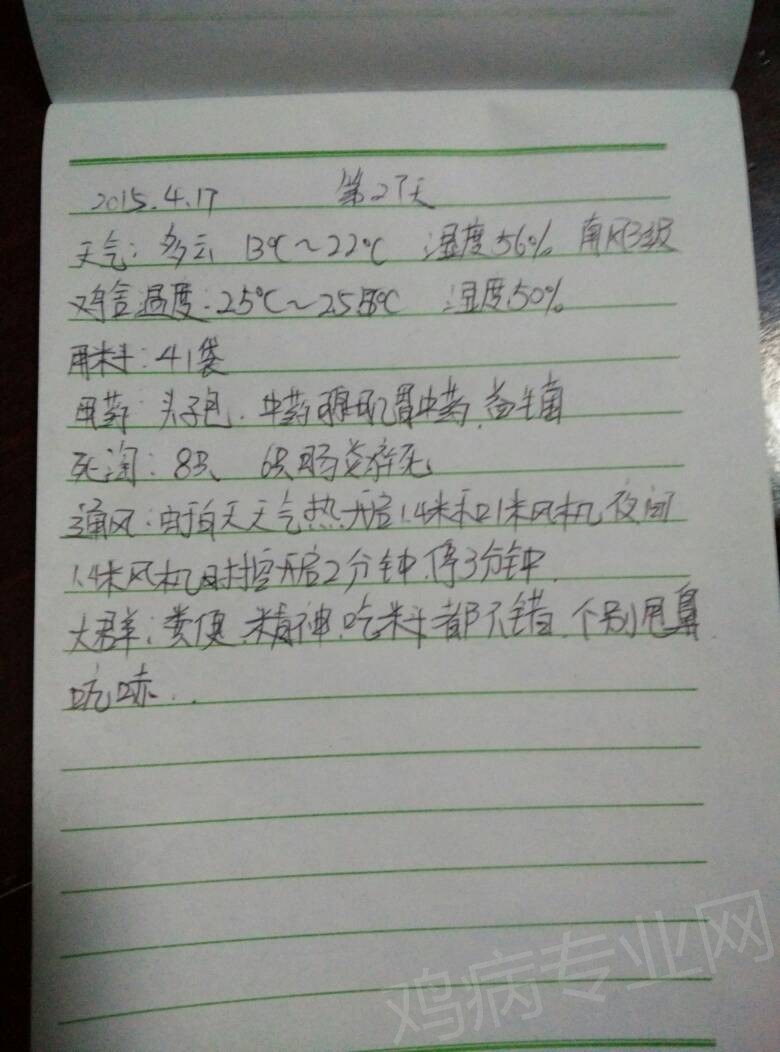 2015.4.17 第27天
天气: 多云 13℃~22℃ 湿度56% 南风3级
鸡舍温度:25℃~25.8℃ 湿度50%
用料: 41袋
用药: 头孢. 中药 肌胃中药. 益生菌
死淘: 8只 6只肠炎瘁死
通风: 由于白天天气热.开启1.4米和1米风机,夜间
1.4米风机时控开启2分钟.停3分钟.
大群: 粪便.精神.吃料都不错.个别甩鼻.
吭哧...
鸡病专业网